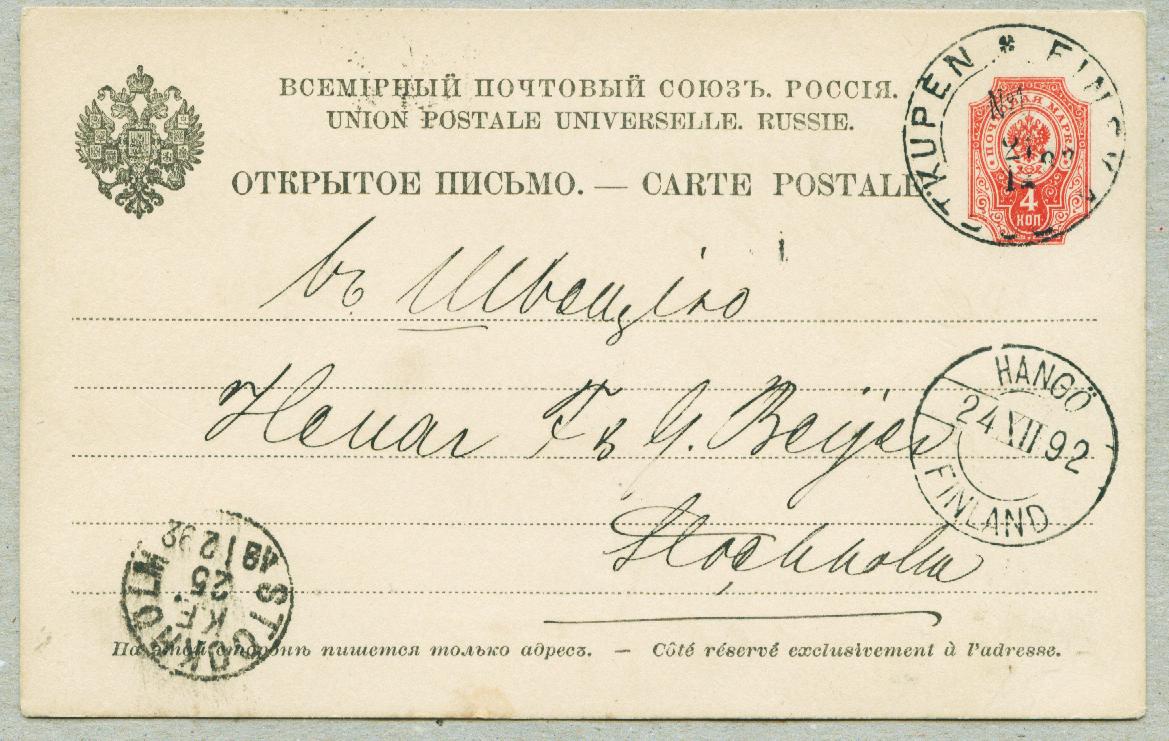 ВСЕМІРНЫЙ ПОЧТОВЫЙ СОЮЗЪ. РОССІЯ.
UNION POSTALE UNIVERSELLE. RUSSIE.
ОТКРЫТОЕ ПИСЬМО. — CARTE POSTALE
KUPÉN
№1
ПОЧТОВАЯ МАРКА
4
КОП
въ Швецію
G. Beijer
Stockholm
HANGÖ
24 XII 92
FINLAND
STOCKHOLM
KF.
25
12 92
На этой сторонѣ пишется только адресъ. — Côté réservé exclusivement à l'adresse.